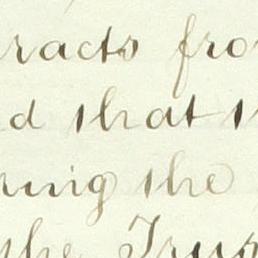 racts fro
d that t
ring the
the Trus